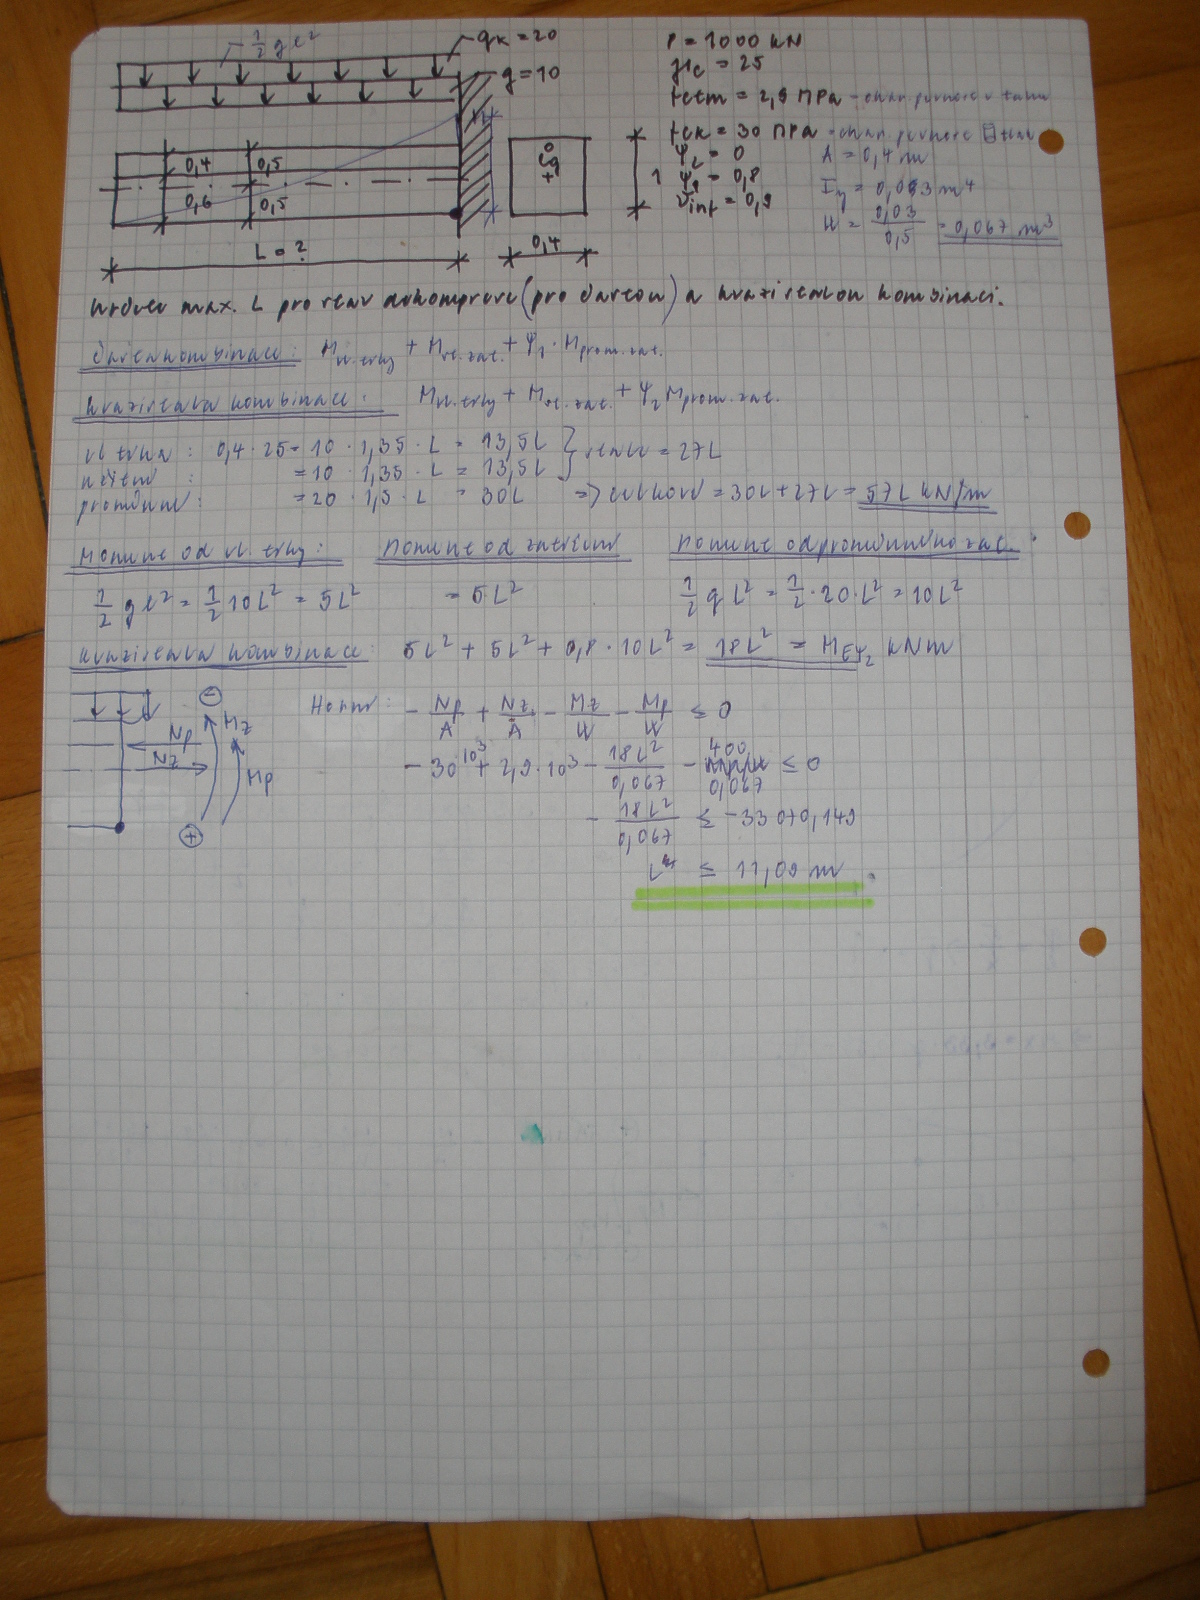 ½ g l²
qk = 20
g = 10
P = 1000 kN
γc = 25
fctm = 2,9 MPa - char. pevnost v tahu
fck = 30 MPa - char. pevnost tlak
ψ2 = 0
ψ1 = 0,8
rinf = 0,9
A = 0,4 m
Iy = 0,033 m⁴
W = 0,03 / 0,5 = 0,067 m³
0,4 0,5
0,6 0,5
Cg
1
L = ?
0,4
Určete max. L pro stav dekomprese (pro častou) a kvazistálou kombinaci.
Častá kombinace: Mvl.tíhy + Mst.zat. + ψ1 · Mprom.zat.
kvazistálá kombinace: Mvl.tíhy + Mst.zat. + ψ2 Mprom.zat.
vl tíha: 0,4 · 25 = 10 · 1,35 · L = 13,5L
= 10 · 1,35 · L = 13,5L } stálé = 27L
proměnné: = 20 · 1,5 · L = 30L => celkové = 30L + 27L = 57L kN/m
Moment od vl. tíhy: Moment od zatížení Moment od proměnného zat.:
½ g l² = ½ 10L² = 5L² = 5L² ½ q L² = ½ · 20 · L² = 10L²
kvazistálá kombinace: 5L² + 5L² + 0,8 · 10L² = 18L² = MEψ2 kNm
⊖
Mz
Np
Nz
Mp
⊕
Horní: - Np/A + Nz/A - Mz/W - Mp/W ≤ 0
- 30 10³ + 2,9 · 10³ - 18L²/0,067 - 400/0,067 ≤ 0
- 18L²/0,067 ≤ -33070,149
L ≤ 11,09 m